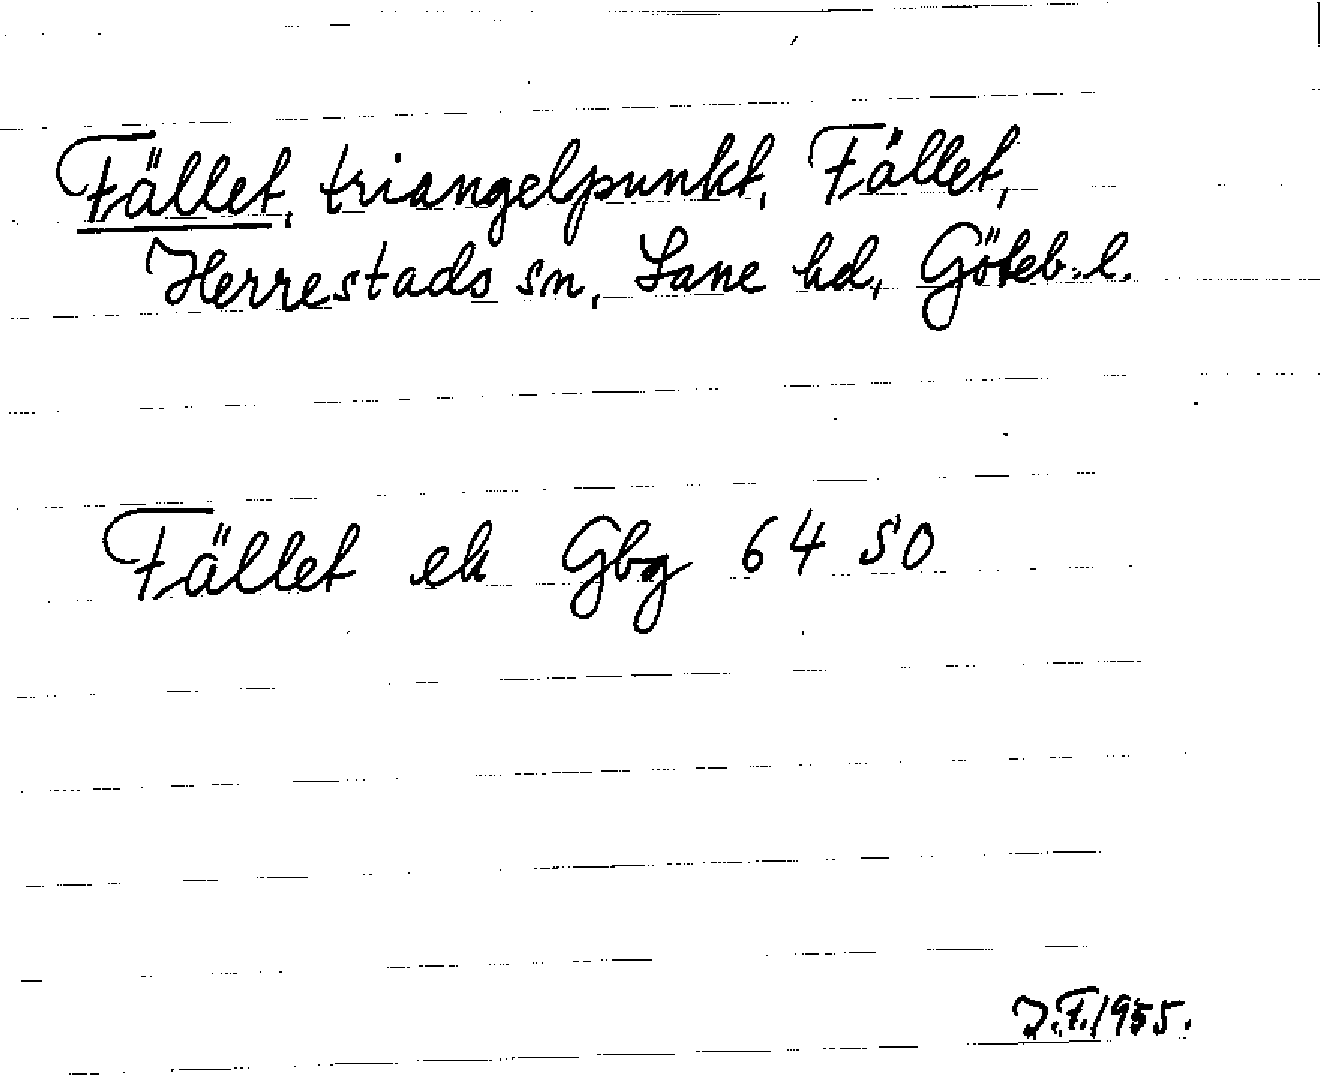 Fället, triangelpunkt, Fället,
Herrestads sn, Lane hd, Göteb. l.
Fället ek Gbg 64 SO
J.F. 1955.